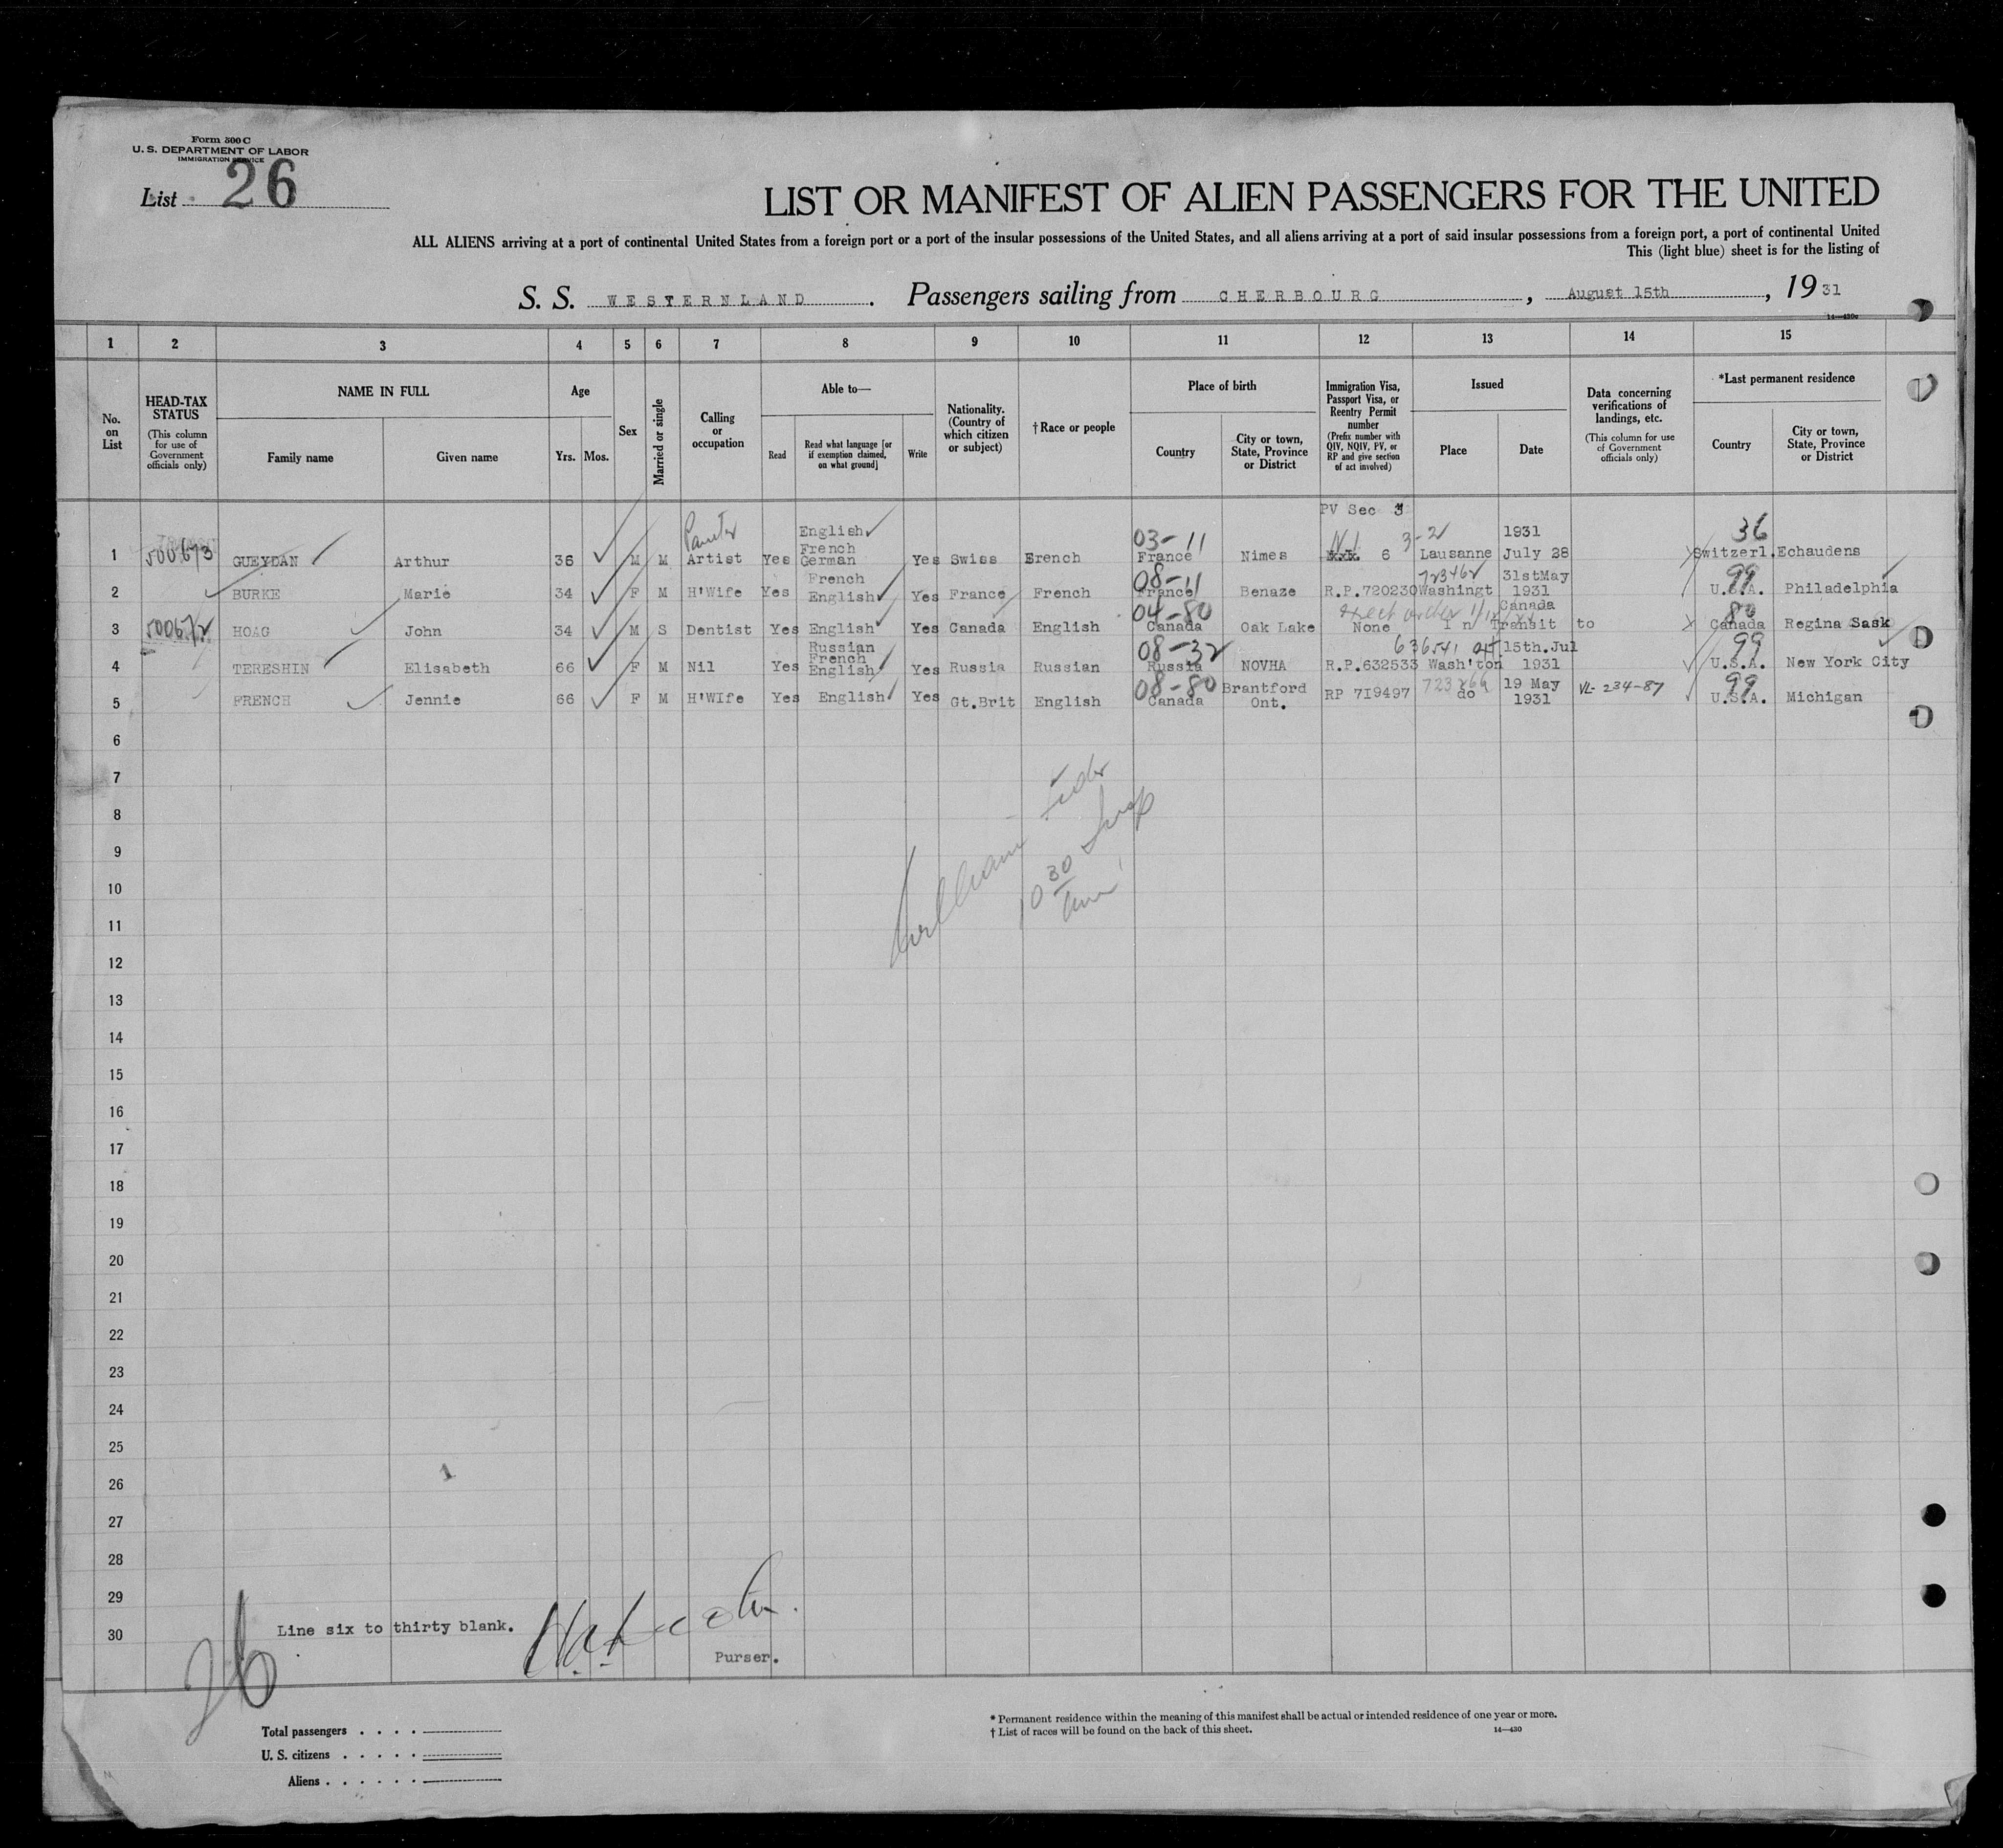 Form 500 C
U. S. DEPARTMENT OF LABOR
IMMIGRATION SERVICE
List 26
LIST OR MANIFEST OF ALIEN PASSENGERS FOR THE UNITED
ALL ALIENS arriving at a port of continental United States from a foreign port or a port of the insular possessions of the United States, and all aliens arriving at a port of said insular possessions from a foreign port, a port of continental United
This (light blue) sheet is for the listing of
S. S. WESTERNLAND. Passengers sailing from CHERBOURG, August 15th, 1931
14—430c
1 2 3 4 5 6 7 8 9 10 11 12 13 14 15
No. on List
HEAD-TAX STATUS
(This column for use of Government officials only)
NAME IN FULL
Family name Given name
Age
Yrs. Mos.
Sex
Married or single
Calling or occupation
Able to—
Read Read what language [or if exemption claimed, on what ground] Write
Nationality. (Country of which citizen or subject)
†Race or people
Place of birth
Country City or town, State, Province or District
Immigration Visa, Passport Visa, or Reentry Permit number
(Prefix number with QIV, NQIV, PV, or RP and give section of act involved)
Issued
Place Date
Data concerning verifications of landings, etc.
(This column for use of Government officials only)
*Last permanent residence
Country City or town, State, Province or District
PV Sec 3
Painter English 03-11 3-2 1931 36
1 500673 GUEYDAN Arthur 36 M M Artist Yes French German Yes Swiss French France Nimes 6 Lausanne July 28 Switzerl. Echaudens
French 08-11 723462 31stMay 99
2 BURKE Marie 34 F M H'Wife Yes English Yes France French France Benaze R.P.720230 Washingt 1931 U.S.A. Philadelphia
04-80 Canada 80
3 500672 HOAG John 34 M S Dentist Yes English Yes Canada English Canada Oak Lake None In Transit to Canada Regina Sask
Russian French 08-32 636541 15th.Jul 99
4 TERESHIN Elisabeth 66 F M Nil Yes English Yes Russia Russian Russia NOVHA R.P.632533 Wash'ton 1931 U.S.A. New York City
08-80 Brantford 19 May 99
5 FRENCH Jennie 66 F M H'WIfe Yes English Yes Gt.Brit English Canada Ont. RP 7I9497 do 1931 VL-234-87 U.S.A. Michigan
6
7
8
9
10
11
12
13
14
15
16
17
18
19
20
21
22
23
24
25
26
27
28
29
30
William
10 30
Line six to thirty blank.
Purser.
26
Total passengers
U. S. citizens
Aliens
* Permanent residence within the meaning of this manifest shall be actual or intended residence of one year or more.
† List of races will be found on the back of this sheet. 14—430